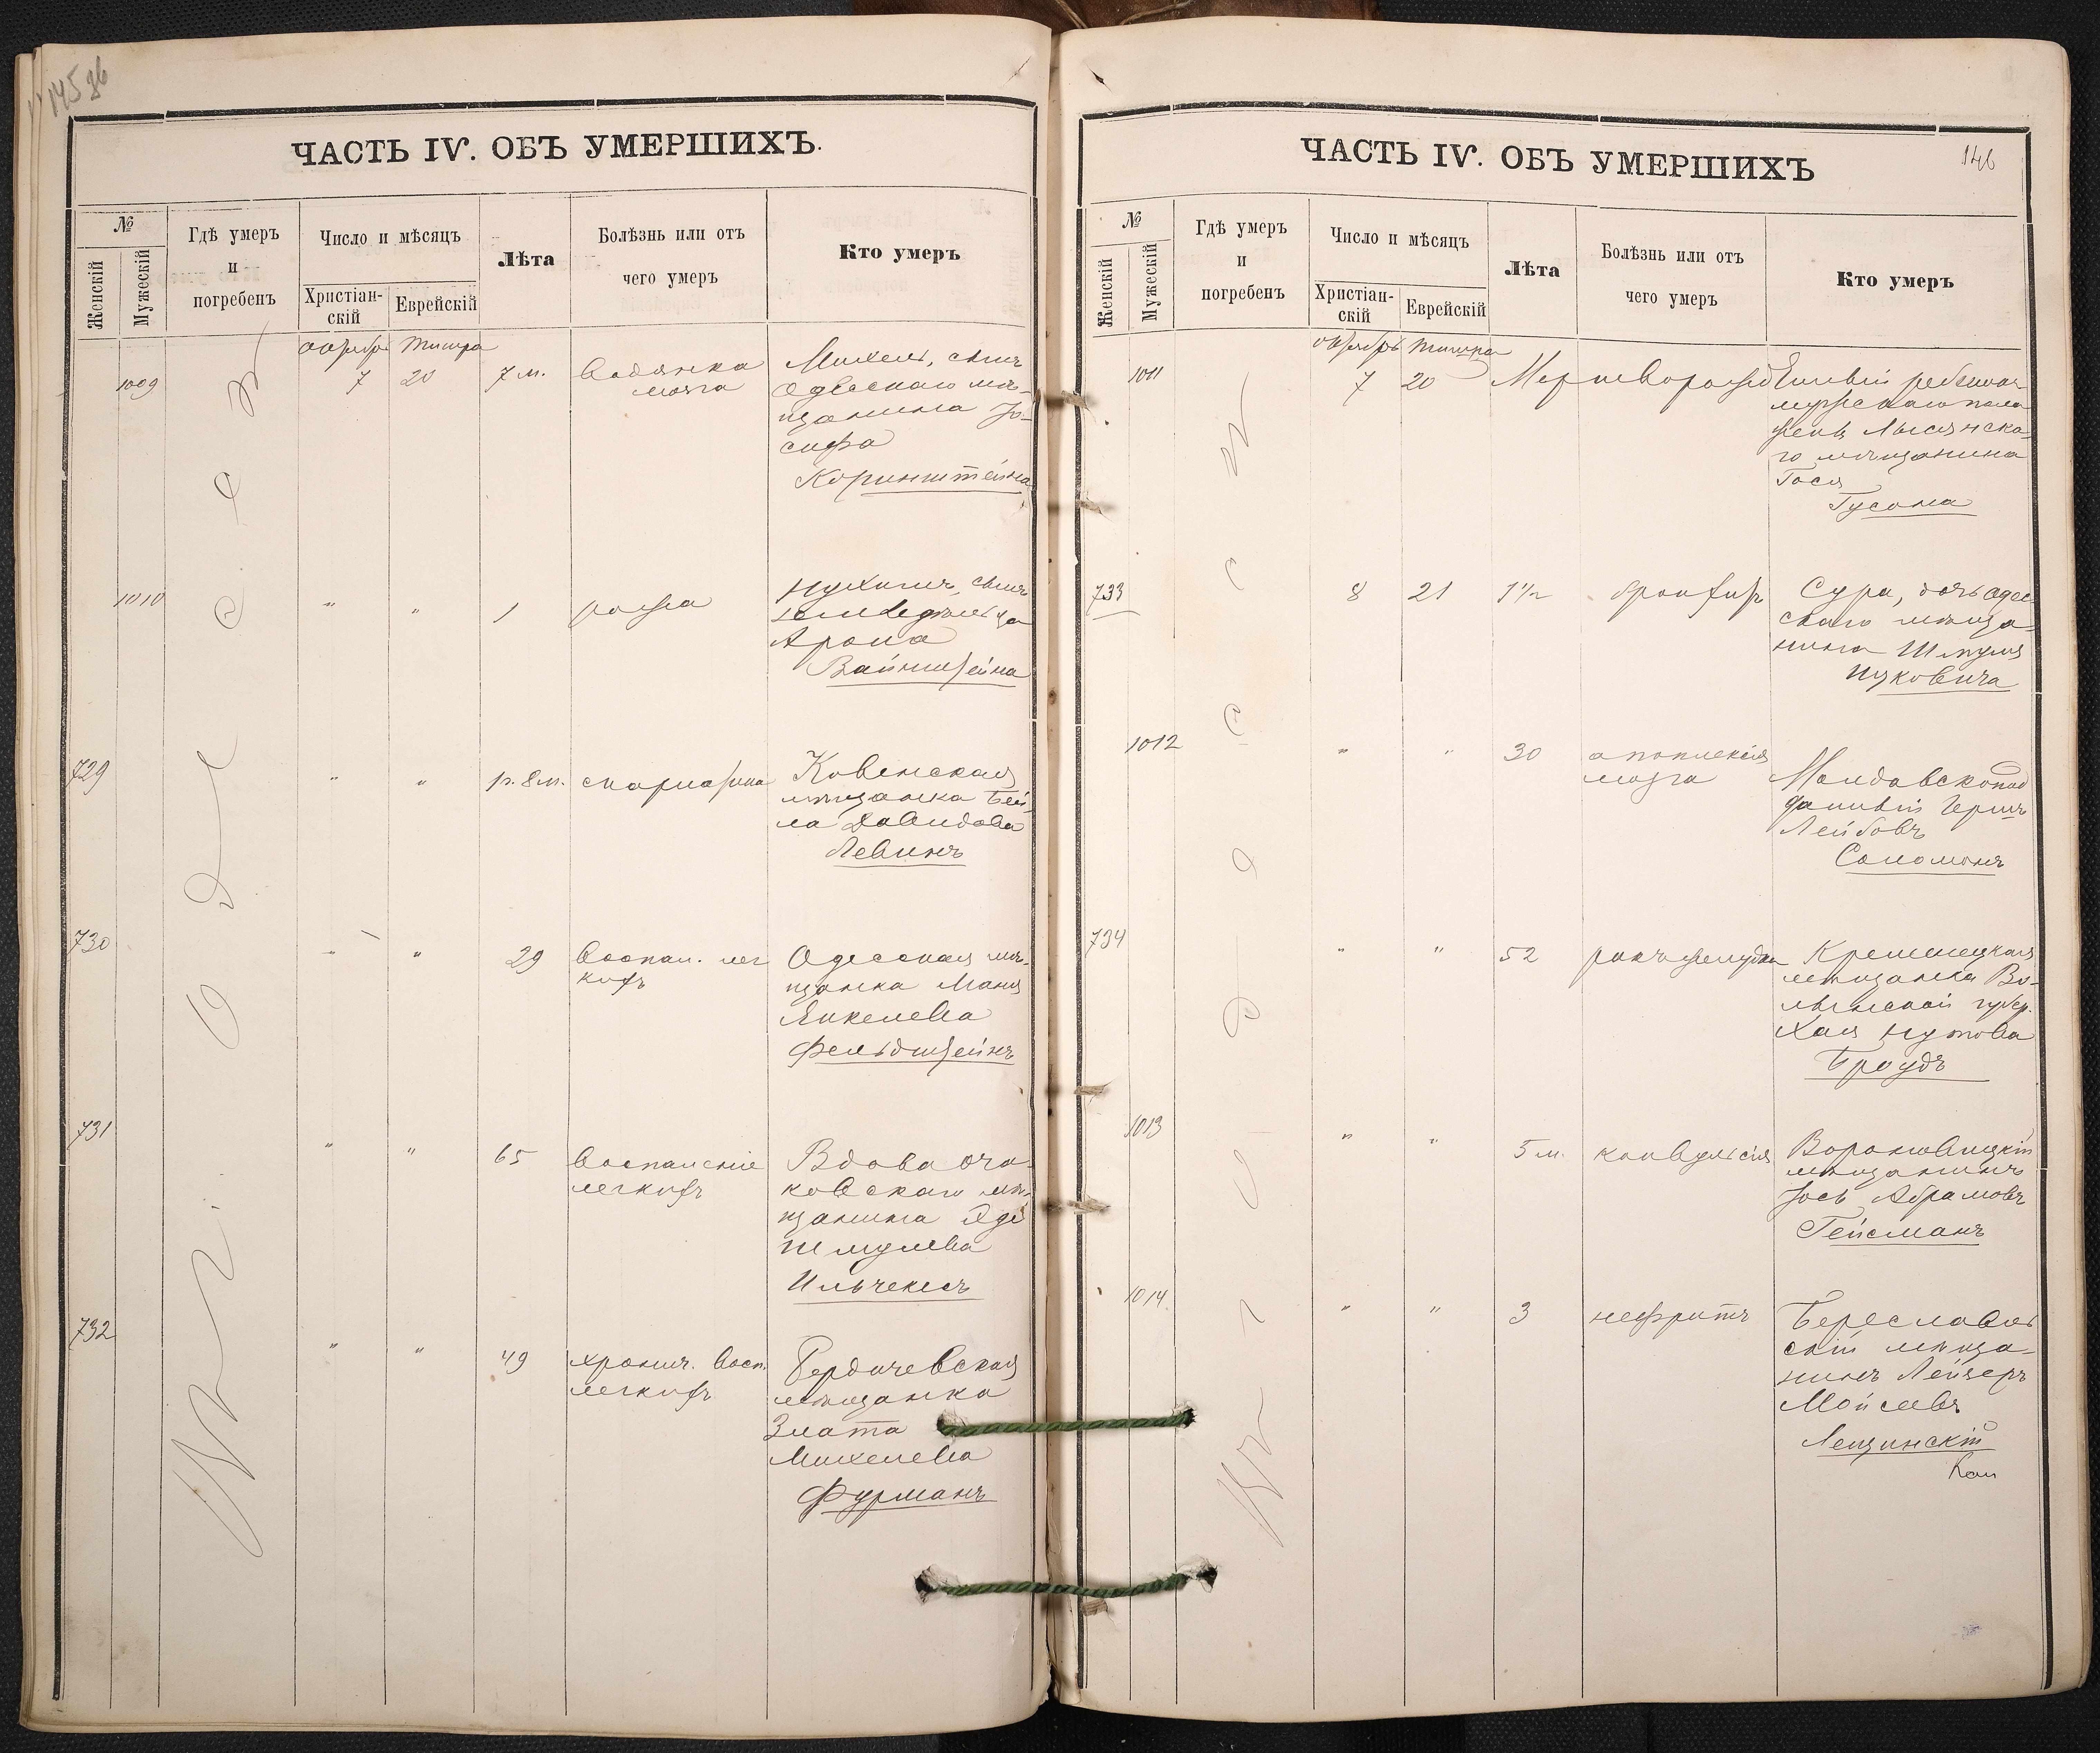 145 об
ЧАСТЬ IV. ОБЪ УМЕРШИХЪ.
№
Женскій
Мужескій
Гдѣ умеръ
и
погребенъ
Число и мѣсяцъ
Христіан-
скій
Еврейскій
Лѣта
Болѣзнь или отъ
чего умеръ
Кто умеръ
въ г. Одессѣ
октябрь Тишра
1009 7 20 7 м. Водянка
мозга
Михель, сынъ
Одесскаго мѣ-
щанина Іо-
сифа
Коринштейна
1010 " " 1 рожа
Нухимъ, сынъ
земледѣльца
Арона
Вайнштейна
729 " " 1 г. 8 м. скарлатина
Ковенская
мѣщанка Бей-
ла Давидова
Левинъ
730 " " 29 Воспал. лег
кихъ
Одесская мѣ-
щанка Маня
Янкелева
Фельдштейнъ
731 " " 65 Воспаленіе
легкихъ
Вдова оча-
ковскаго мѣ-
щанина
Шмулева
Ильчекесъ
732 " " 49 хронич. Восп.
легкихъ
Бердичевская
мѣщанка
Злата
Михелева
Фурманъ
146
ЧАСТЬ IV. ОБЪ УМЕРШИХЪ
№
Женскій
Мужескій
Гдѣ умеръ
и
погребенъ
Число и мѣсяцъ
Христіан-
скій
Еврейскій
Лѣта
Болѣзнь или отъ
чего умеръ
Кто умеръ
въ г. Одессѣ
октябрь Тишра
1011 7 20 Мертворожденный ребенокъ
мужскаго пола
Лысянска-
го мѣщанина
Госа
Гусона
733 8 21 1½ бронхитъ
Сура, дочь одес
скаго мѣща-
нина Шмуля
Ицковича
1012 " " 30 апоплексія
мозга
Молдавскопод
данный Гершъ
Лейбовъ
Соломонъ
734 " " 52 ракъ желудка
Кременецкая
мѣщанка Во-
лынской губер.
Хая Нутова
Броудъ
1013 " " 5 м. конвульсія
Вороновицкій
мѣщанинъ
Іосъ Абрамовъ
Гейсманъ
1014 " " 3 нефритъ
Береславль
скій мѣща-
нинъ Лейзеръ
Мойсеевъ
Лещинскій